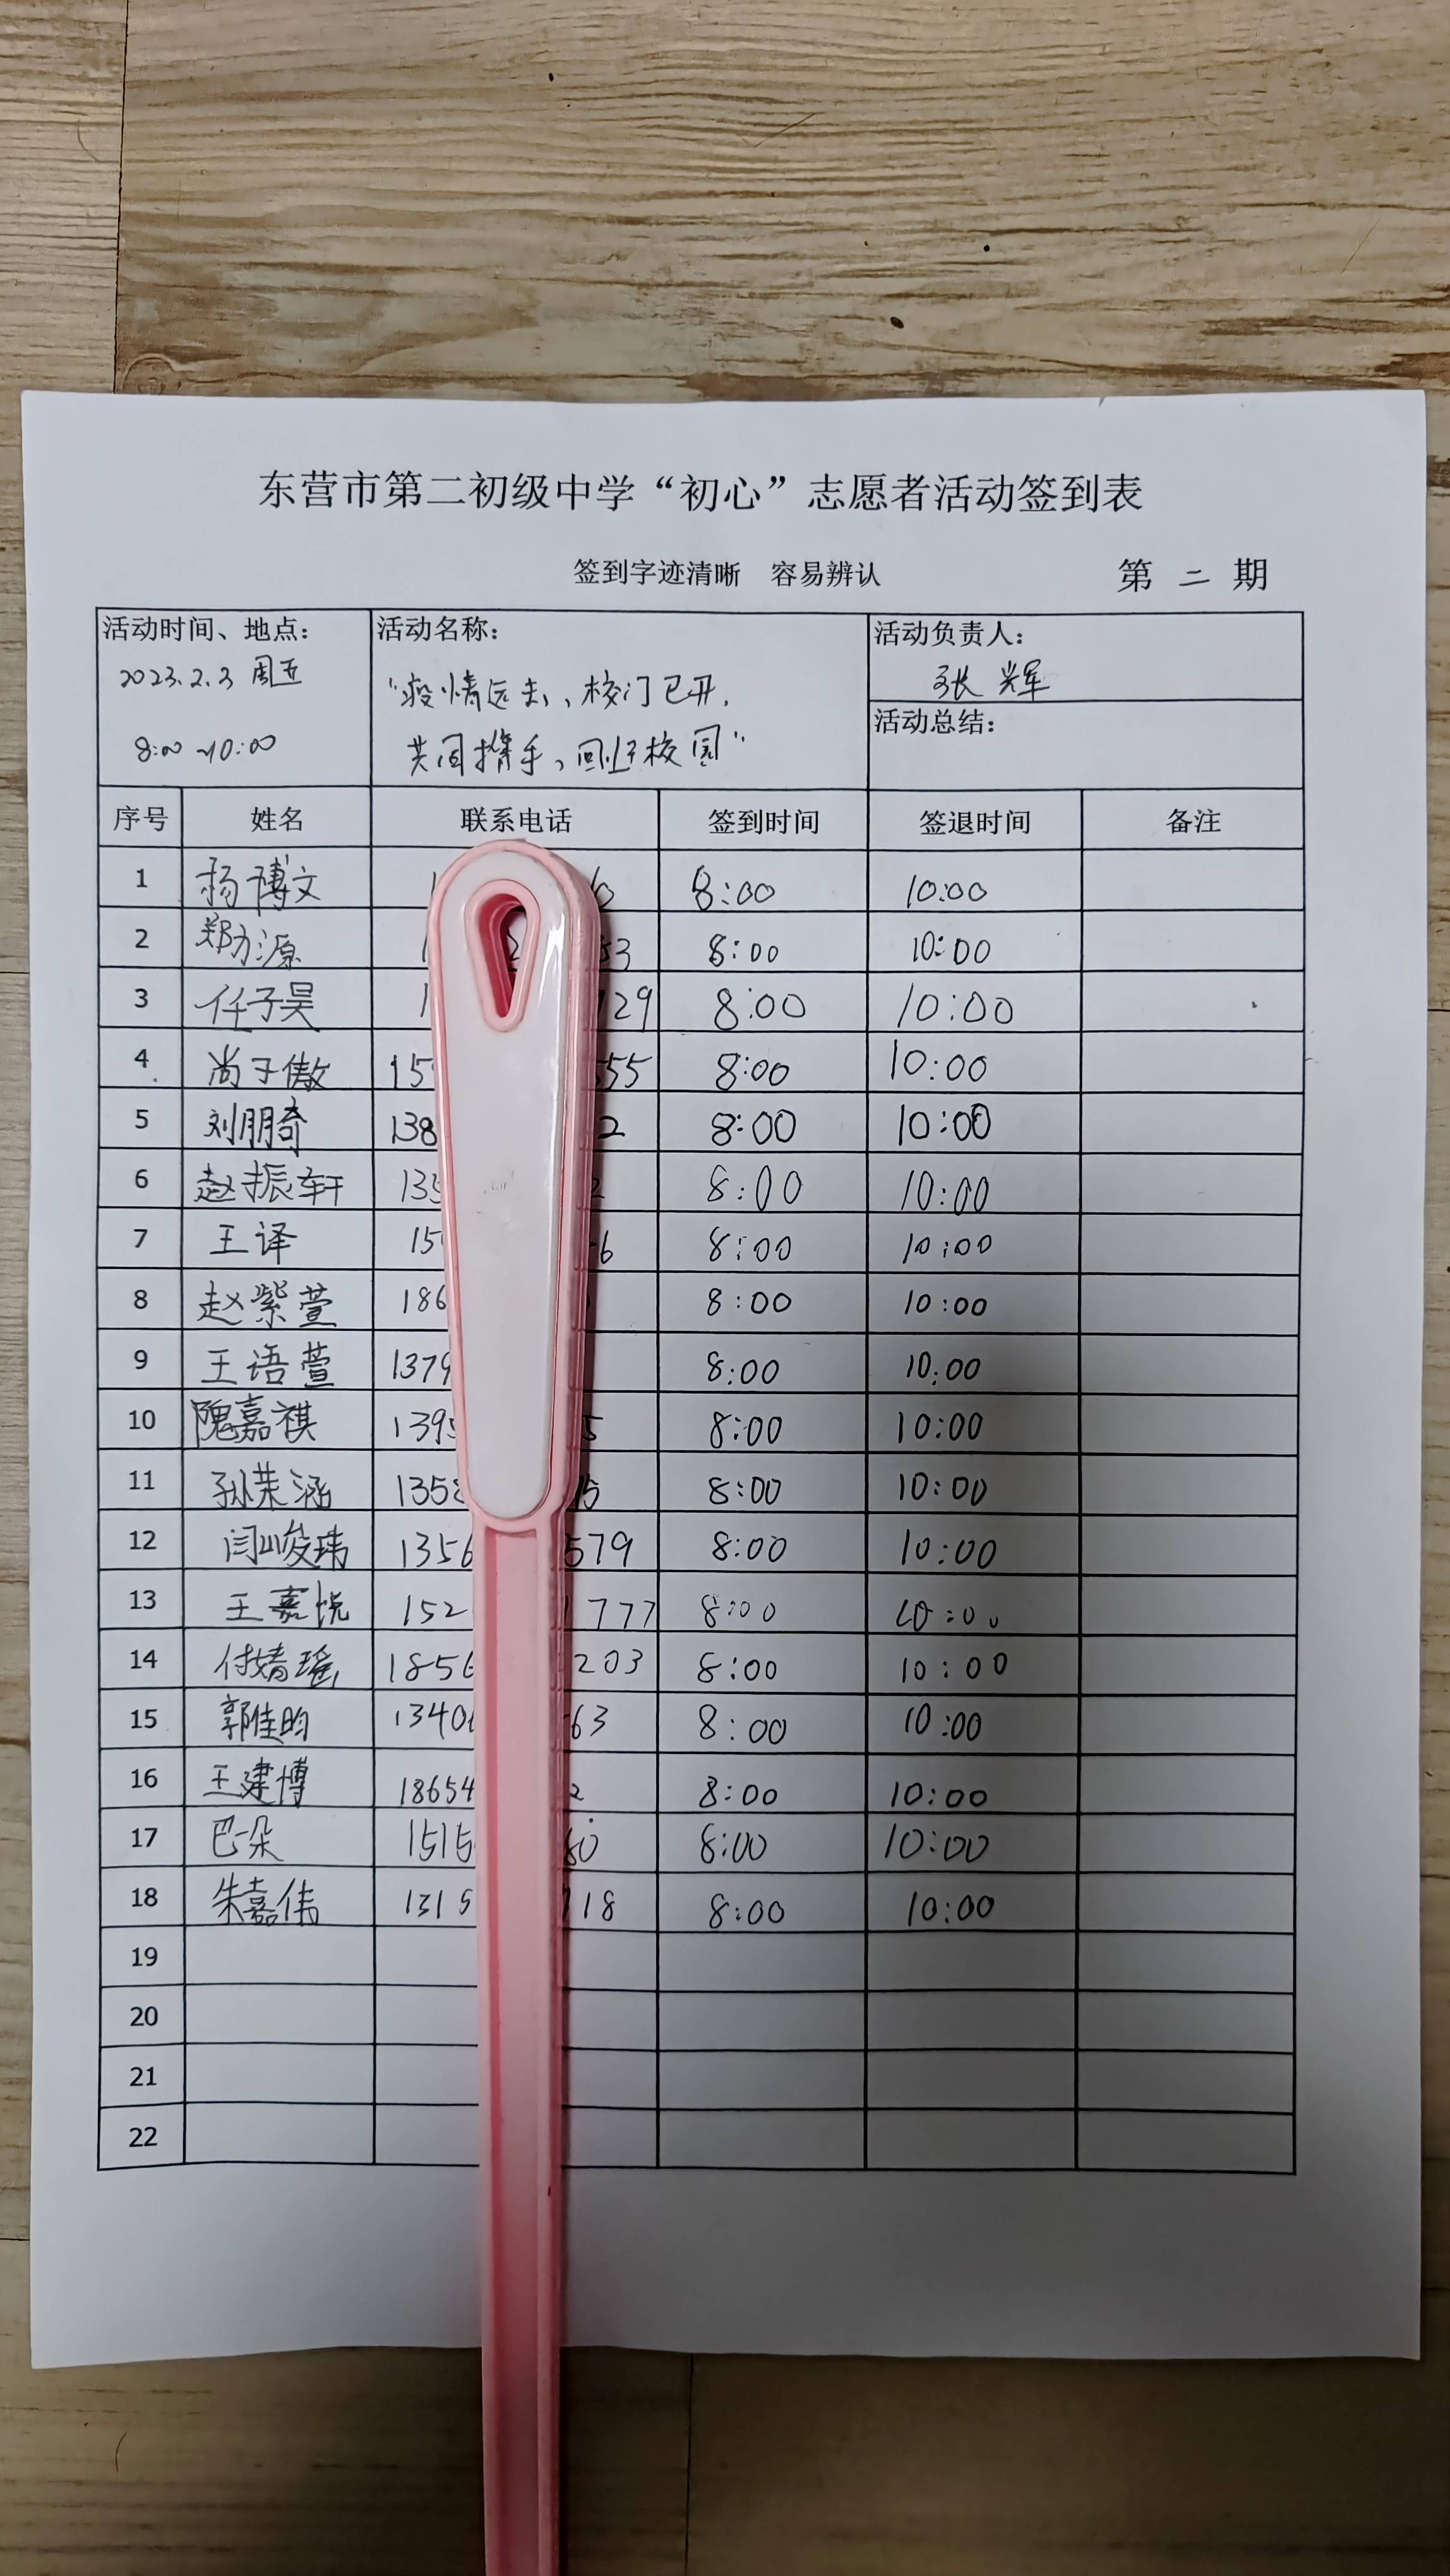 东营市第二初级中学“初心”志愿者活动签到表
签到字迹清晰 容易辨认 第 二 期
活动时间、地点： 活动名称： 活动负责人：
2023.2.3 周五 “疫情远去，校门已开， 张辉
8:00~10:00 共同携手，回归校园” 活动总结：
序号 姓名 联系电话 签到时间 签退时间 备注
1 杨博文 8:00 10:00
2 郑力源 53 8:00 10:00
3 任子昊 129 8:00 10:00
4 尚子傲 15 555 8:00 10:00
5 刘朋奇 138 2 8:00 10:00
6 赵振轩 135 2 8:00 10:00
7 王译 15 6 8:00 10:00
8 赵紫萱 186 8:00 10:00
9 王语萱 1379 8:00 10:00
10 隗嘉祺 1395 5 8:00 10:00
11 孙荣涵 1358 15 8:00 10:00
12 闫峻玮 1356 579 8:00 10:00
13 王嘉悦 152 1777 8:00 10:00
14 付婧瑶 1856 203 8:00 10:00
15 郭佳昀 1340 63 8:00 10:00
16 王建博 18654 2 8:00 10:00
17 巴朵 1515 80 8:00 10:00
18 朱嘉伟 1315 118 8:00 10:00
19
20
21
22